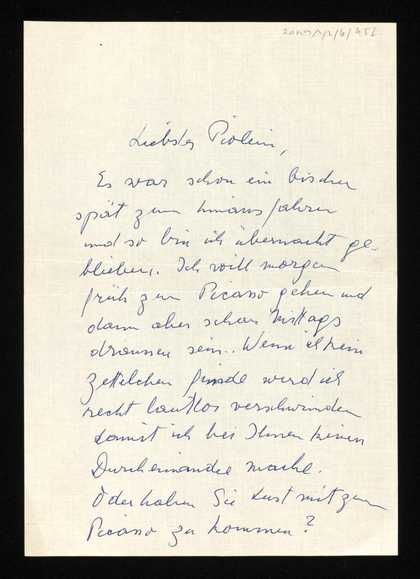 Liebstes Piolein,
Es war schon ein bischen
spät zum hinausfahren
und so bin ich übernacht ge-
blieben. Ich will morgen
früh zum Picasso gehen und
dann aber schon Mittags
draussen sein.. Wenn ich kein
Zettelchen finde werd ich
recht lautlos verschwinden
damit ich bei Ihnen keinen
Durcheinander mache.
Oder haben Sie Lust mit zum
Picasso zu kommen?